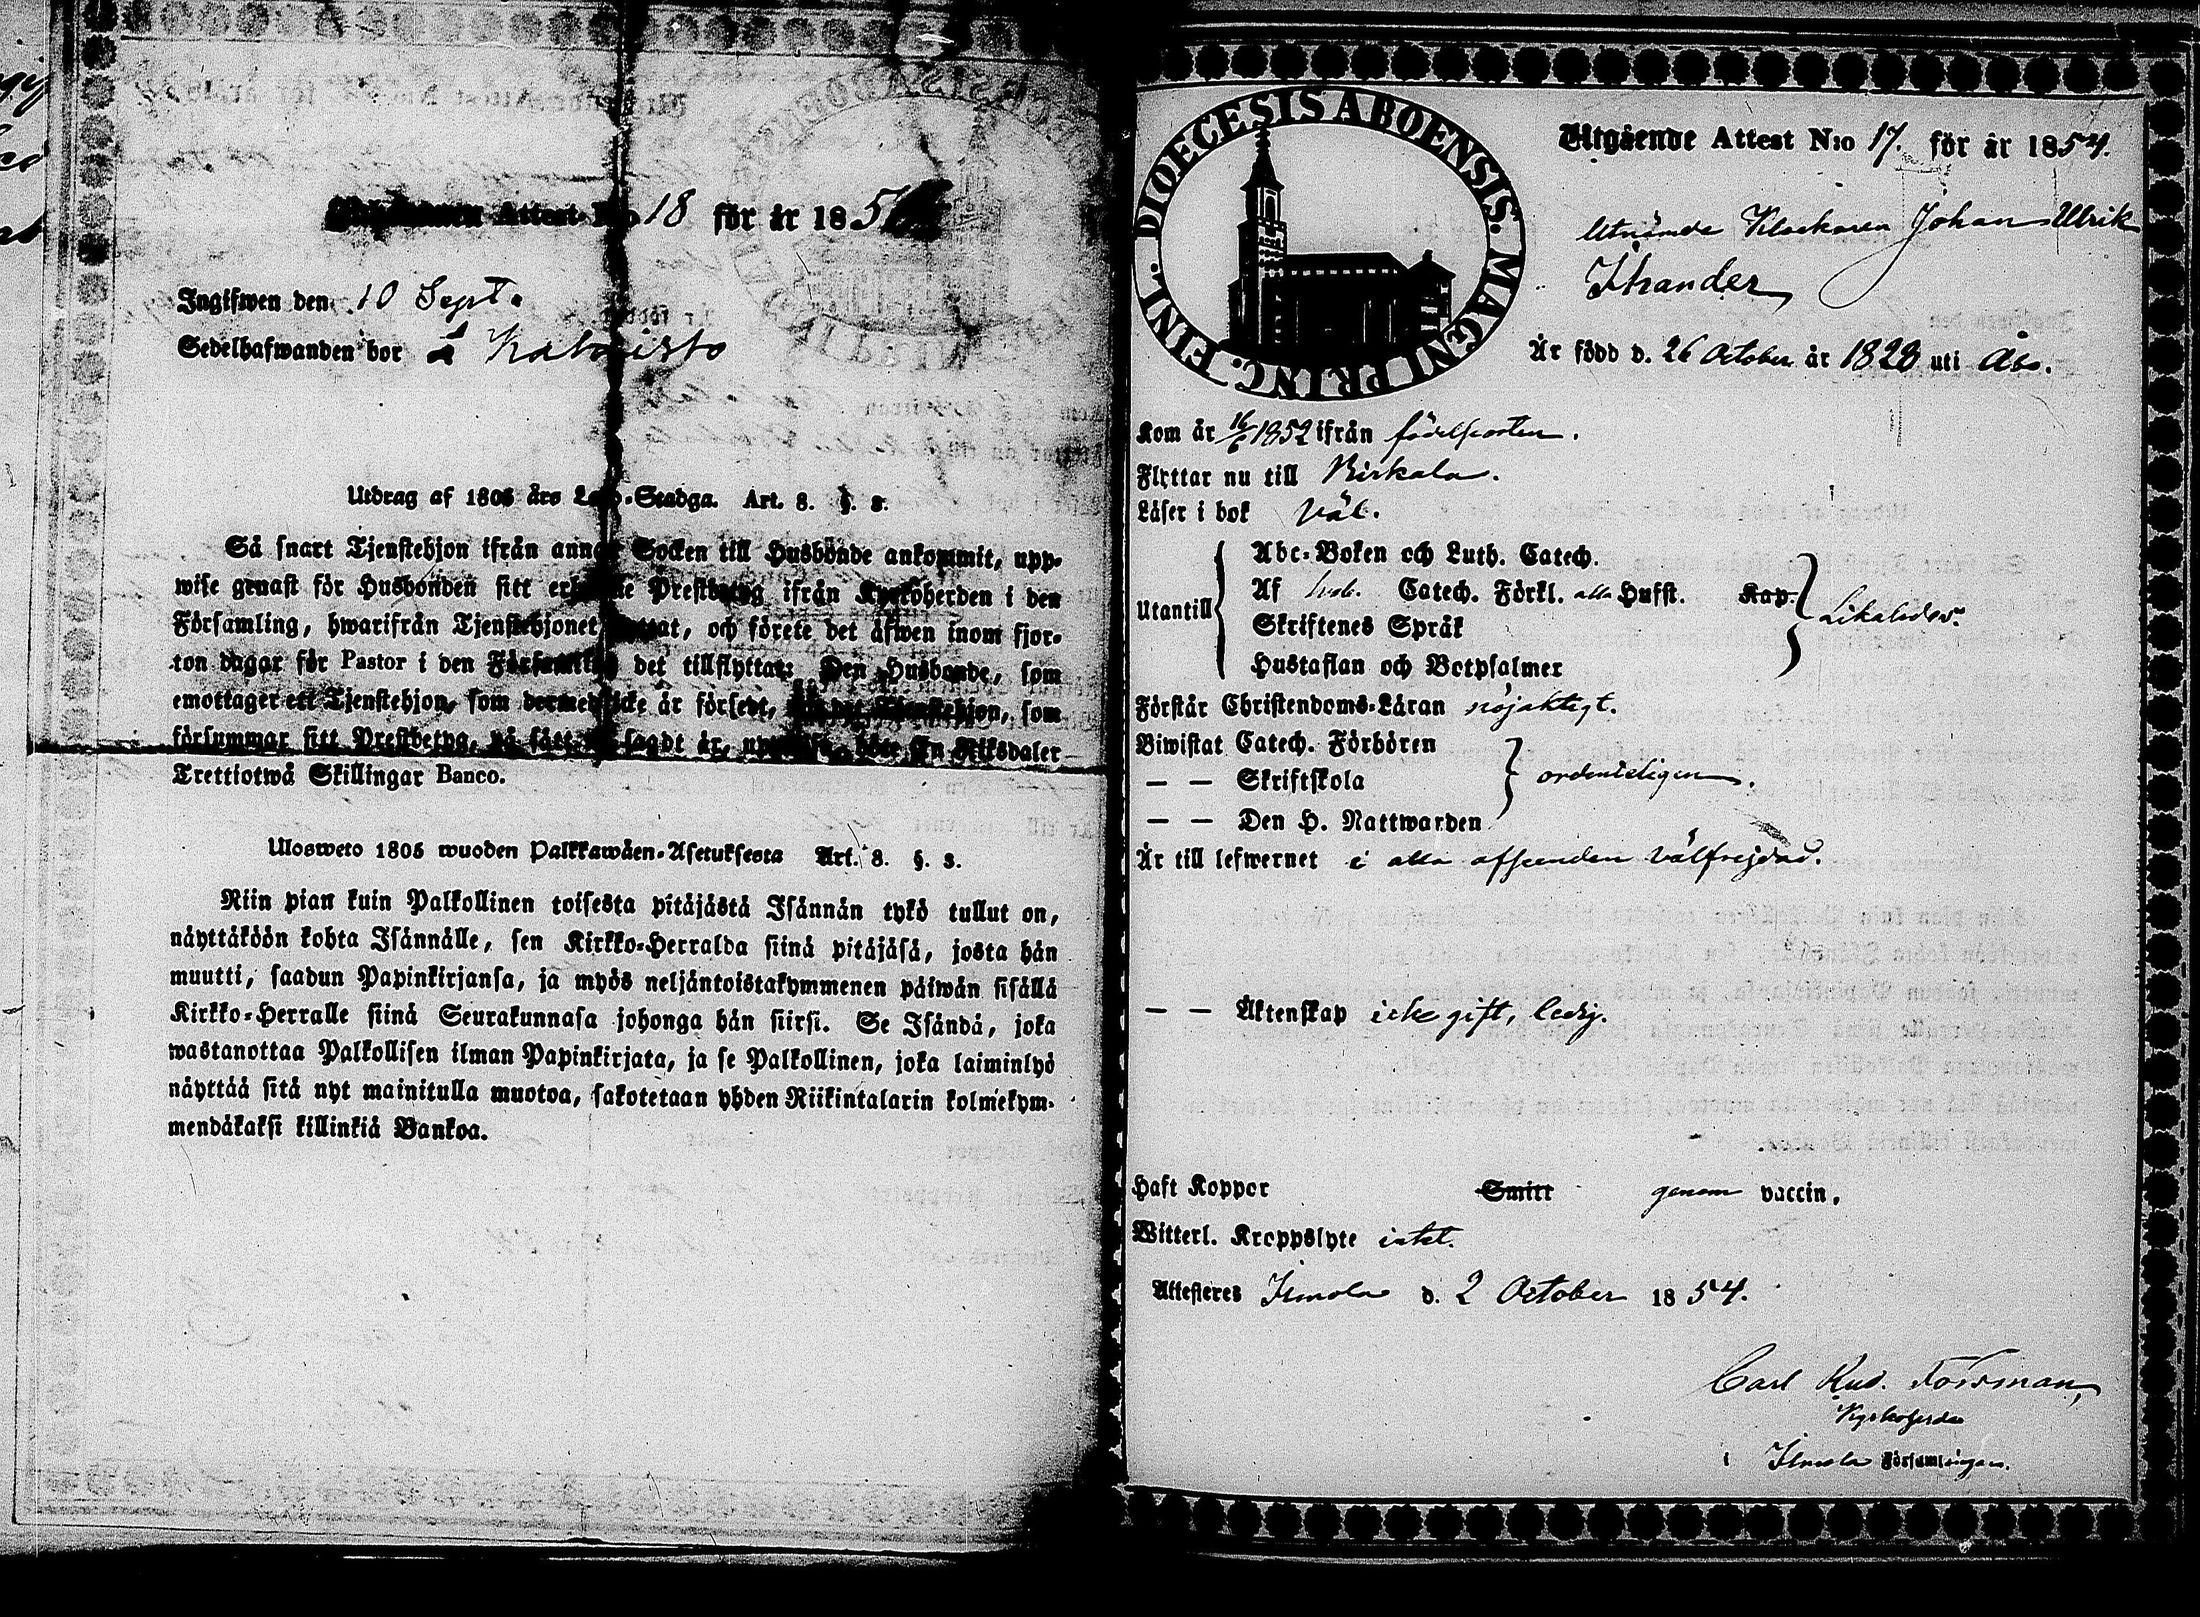 Attest N:o 18 för år 185
Ingifwen den 10 Sept.
Sedelhafwanden bor å
Utdrag af 1805 års Lego-Stadga. Art. 8. §. 3.
Så snart Tjenstehjon ifrån annan Socken till Husbonde ankommit, upp-
wise genast för Husbonden sitt erhållne Prestbetyg ifrån Kyrkoherden i den
Församling, hwarifrån Tjenstehjonet flyttat, och förete det äfwen inom fjor-
ton dagar för Pastor i den Församling det tillflyttat: Den Husbonde, som
emottager ett Tjenstehjon, som dermed icke är försedt, och det Tjenstehjon, som
försummar sitt Prestbetyg, på sätt nu sagdt är, uppwisa, böte En Riksdaler
Trettiotwå Skillingar Banco.
Ulosweto 1805 wuoden Palkkawäen-Asetuksesta Art. 8. §. 3.
Niin pian kuin Palkollinen toisesta pitäjästä Isännän tykö tullut on,
näyttäköön kohta Isännälle, sen Kirkko-Herralda siinä pitäjäsä, josta hän
muutti, saadun Papinkirjansa, ja myös neljäntoistakymmenen päiwän sisällä
Kirkko-Herralle siinä Seurakunnasa johonga hän siirsi. Se Isändä, joka
wastanottaa Palkollisen ilman Papinkirjata, ja se Palkollinen, joka laiminlyö
näyttää sitä nyt mainitulla muotoa, sakotetaan yhden Riikintalarin kolmekym-
mendäkaksi killinkiä Bankoa.
DIOECESIS ABOENSIS. MAGNI PRINC. FINL.
Utgående Attest N:o 17. för år 1854.
Utnämde Klockaren Johan Ulrik
Ithander,
Är född d. 26 October år 1828 uti Åbo.
Kom år 16/6 1852 ifrån födelseorten.
Flyttar nu till Birkala.
Läser i bok väl.
Utantill
Abc-Boken och Luth. Catech.
Af Catech. Förkl. alla Hufst. Kap.
Skriftenes Språk
Hustaflan och Botpsalmer
Likaledes.
Förstår Christendoms-Läran nöjaktigt.
Biwistat Catech. Förhören
— — Skriftskola
— — Den H. Nattwarden
ordenteligen.
Är till lefwernet i alla afseenden välfrejdad.
— — Äktenskap icke gift, ledig.
Haft Koppor Smitt genom vaccin.
Witterl. Kroppslyte intet.
Attesteres Ilmola d. 2 October 1854.
Carl Rud. Forsman,
Kyrkoherde
i Ilmola Församlingen.